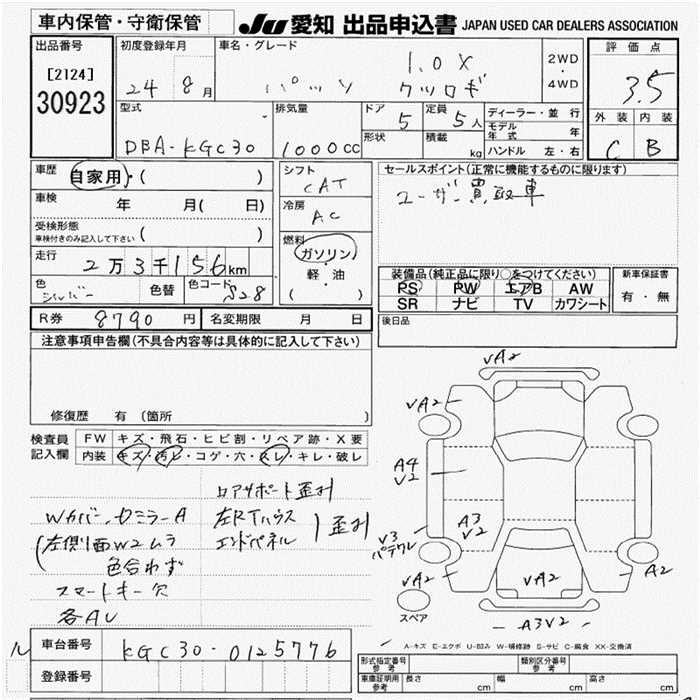 車内保管・守衛保管
JU 愛知 出品申込書 JAPAN USED CAR DEALERS ASSOCIATION
出品番号
[2124]
30923
初度登録年月
24 8月
車名・グレード
1.0X
パッソ クツロギ
2WD
・
4WD
評価点
3.5
外装 内装
C B
型式
DBA-KGC30
排気量
1000cc
ドア
5
定員
5人
形状
積載
kg
ディーラー・並行
モデル年式 年
ハンドル 左・右
車歴
自家用・( )
車検
年 月( 日)
受検形態
車検付きのみ記入して下さい ( )
走行
2万3千156km
色
シルバー
色替
色コード
S28
シフト
CAT
冷房
AC
燃料
ガソリン
・
軽・油
( )
セールスポイント(正常に機能するものに限ります)
ユーザー買取車
装備品(純正品に限り○をつけてください)
PS PW エアB AW
SR ナビ TV カワシート
新車保証書
有・無
R券 8790円
名変期限 月 日
後日品
注意事項申告欄(不具合内容等は具体的に記入して下さい)
修復歴 有(箇所 )
検査員記入欄
FW キズ・飛石・ヒビ割・リペア跡・X要
内装 キズ・汚レ・コゲ・穴・スレ・キレ・破レ
ロアサポート歪み
Wカバー、ドミラーA
左RTハウス
エンドパネル
歪み
(左側面W2ムラ
色合わず
スマートキー欠
各AU
VA2
VA2
A4
V2
A3
V2
V3
パテワレ
VA2
VA2
A2
A3V2
スペア
A-キズ E-エクボ U-凹み W-補修跡 S-サビ C-腐食 XX-交換済
ル
車台番号
KGC30-0125776
登録番号
形式指定番号
参考
類別区分番号
参考
車庫証明用
参考
長さ cm
幅 cm
高さ cm